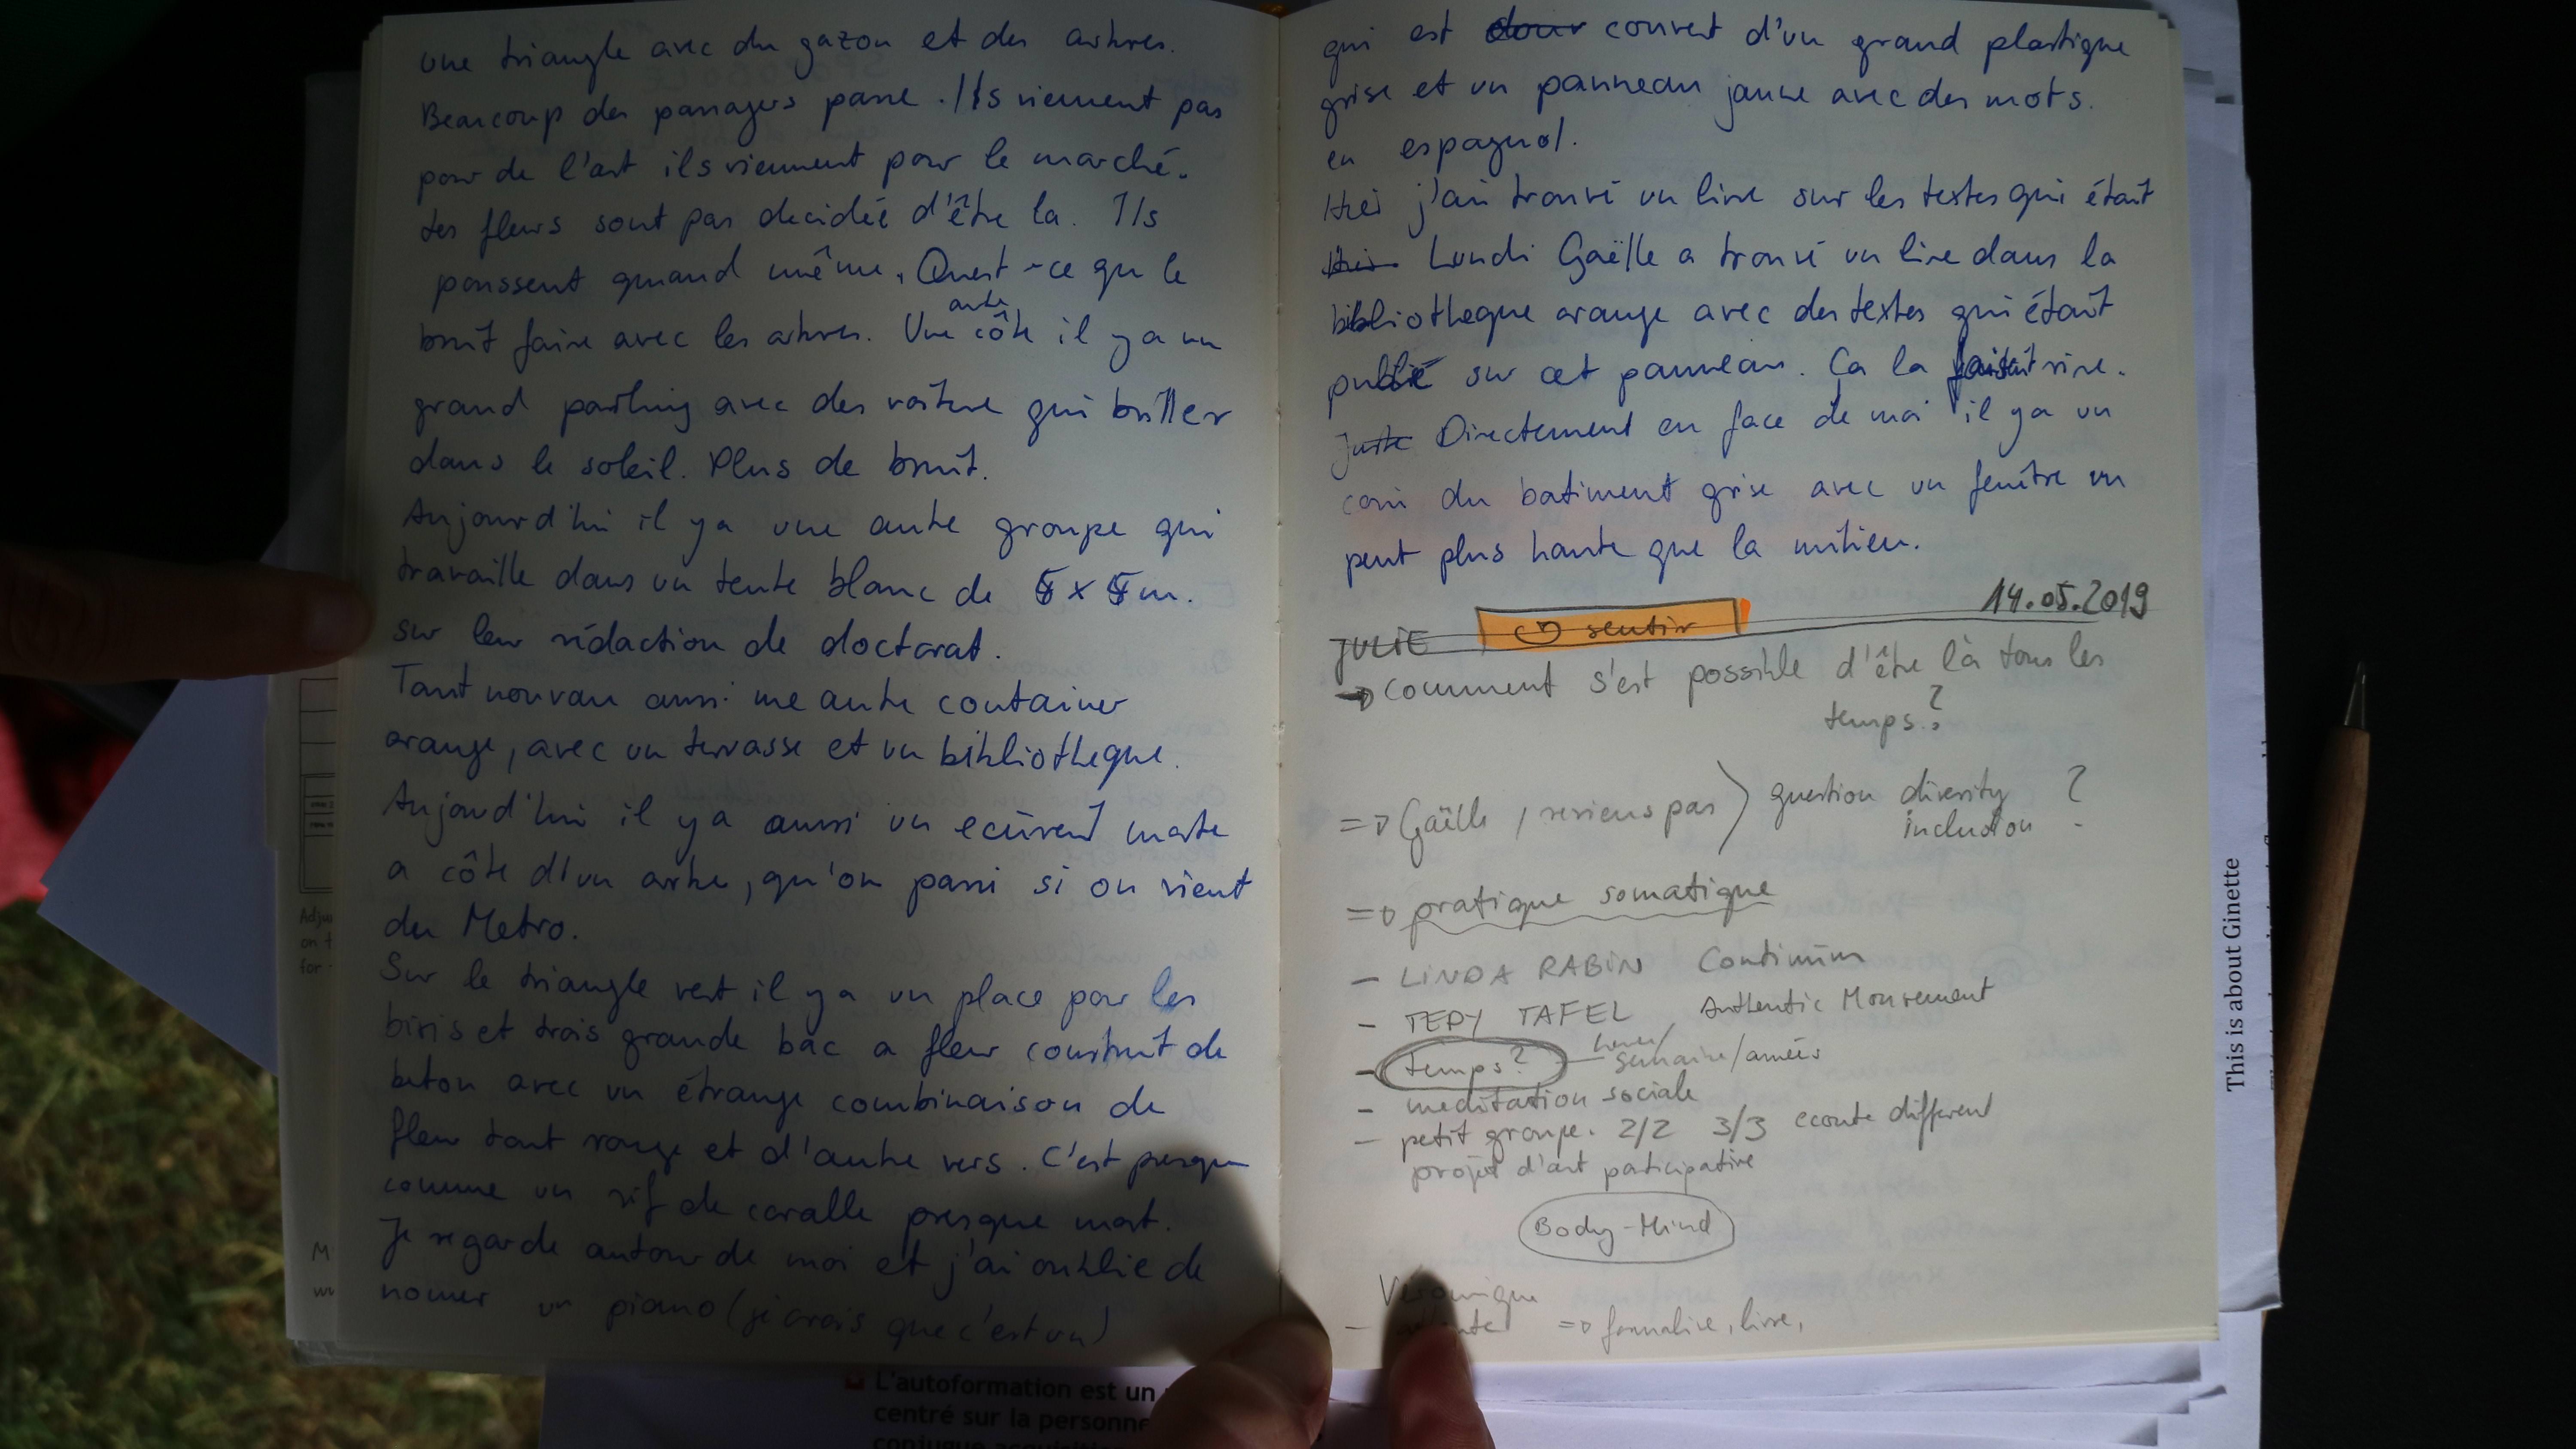 une triangle avec du gazon et des arbres.
Beaucoup des passagers passe. Ils viennent pas
pour de l'art ils viennent pour le marché.
Les fleurs sont pas decidée d'être la. Ils
poussent quand même. Quest-ce que le
bruit faire avec les arbres. Une autre côte il y a un
grand parking avec des voiture qui briller
dans le soleil. Plus de bruit.
Aujourd'hui il y a une autre groupe qui
travaille dans un tente blanc de 5 x 5 m.
sur leur rédaction de doctorat.
Tant nouveau aussi une autre container
orange, avec un terrasse et un bibliotheque.
Aujourd'hui il y a aussi un ecureuil morte
a côte d'un arbre, qu'on passi si on vient
du Metro.
Sur le triangle vert il y a un place pour les
et trois grande bac a fleur construit de
beton avec un étrange combinaison de
fleur tout rouge et d'autre vers. C'est presque
comme un rif de coralle presque mort.
Je regarde autour de moi et j'ai oublie de
nomer un piano (je crois que c'est un)
qui est couvert d'un grand plastique
grise et un panneau jaune avec des mots.
en espagnol.
Hier j'ai trouvé un livre sur les textes qui était
Hier Lundi Gaëlle a trouvé un livre dans la
bibliotheque orange avec des textes qui était
publié sur cet panneau. Ca la faisait rire.
Juste Directement en face de moi il y a un
coin du batiment grise avec un fenêtre un
peut plus haute que la milieu.
14.05.2019
JULIE sentir
→ comment s'est possible d'être là tous les
temps.?
=> Gaëlle / reviens pas ) question diversity ?
inclusion
=> pratique somatique
- LINDA RABIN Continuum
- TEDY TAFEL Authentic Mouvement
- temps? — heures/
semaine/années
- meditation sociale
- petit groupe. 2/2 3/3 ecoute different
projet d'art participative
Body-Mind
Véronique
- => formalise, livre,
This is about Ginette
L'autoformation est un
centré sur la personne
Adju
on t
for
M